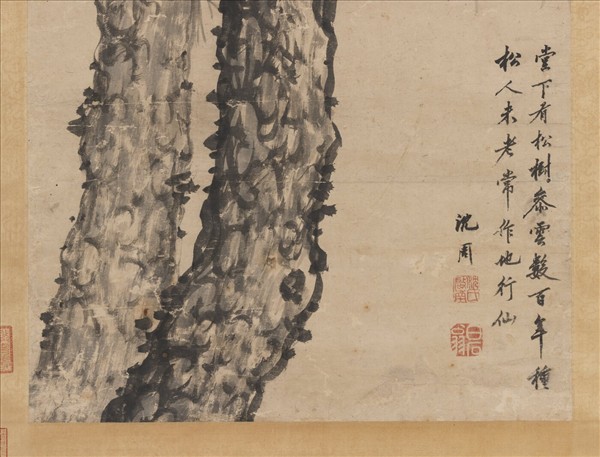 堂下看松樹參雲數百年種
松人未老常作地行仙
沈周
白石翁